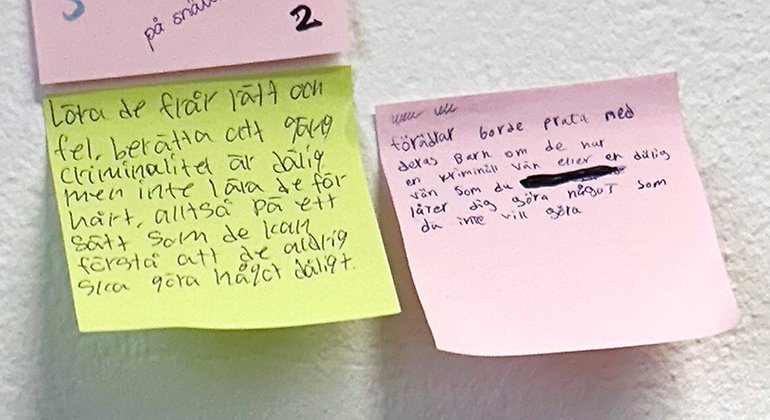 på snäl
2
Lära de flår rätt och
fel, berätta att gäng
criminalitet är dålig
men inte lära de för
hårt, alltså på ett
sätt som de kan
förstå att de aldrig
ska göra något dåligt.
förädlar borde prata med
deras Barn om de har
en kriminäll vän eller en dålig
vän som du
låter dig göra något som
du inte vill göra